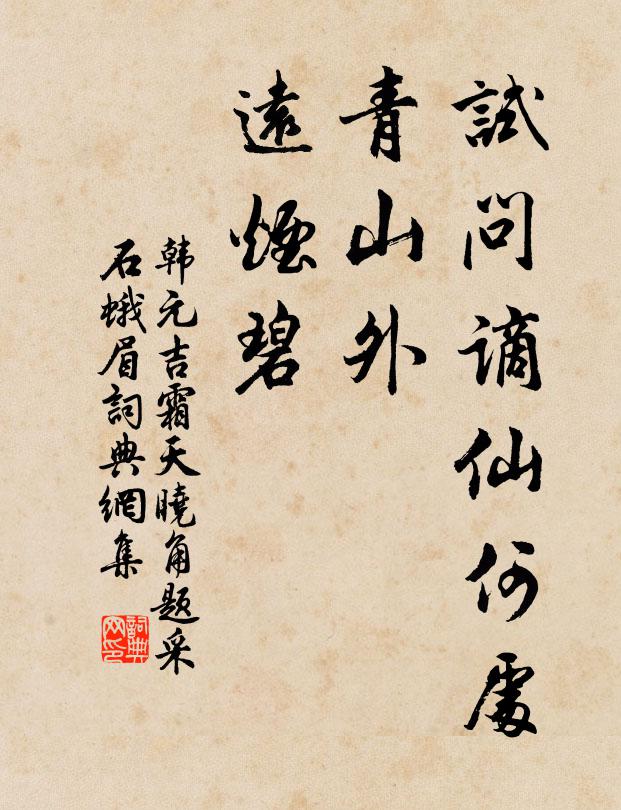 試問謫仙何處
青山外
遠煙碧
韩元吉霜天曉角題采
石蛾眉詞典網集
詞典网印